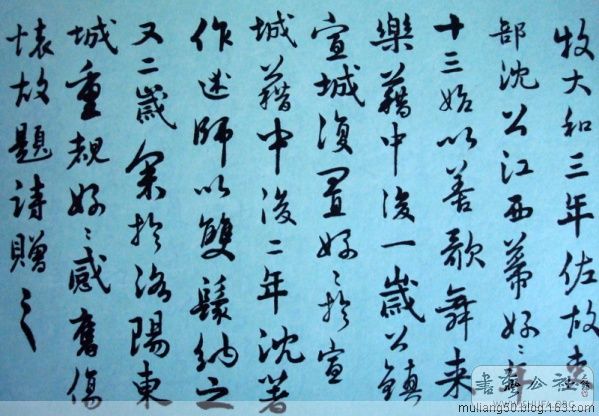 牧大和三年佐故吏
部沈公江西幕好〻年
十三始以善歌舞来
樂藉中後一歲公鎮
宣城復置好〻於宣
城藉中後二年沈著
作述師以雙鬟納之
又二歲余於洛陽東
城重覩好〻感舊傷
懷故題詩贈之
書藝公社
WWW.SHUFA.ORG
muliang50.blog.163.com